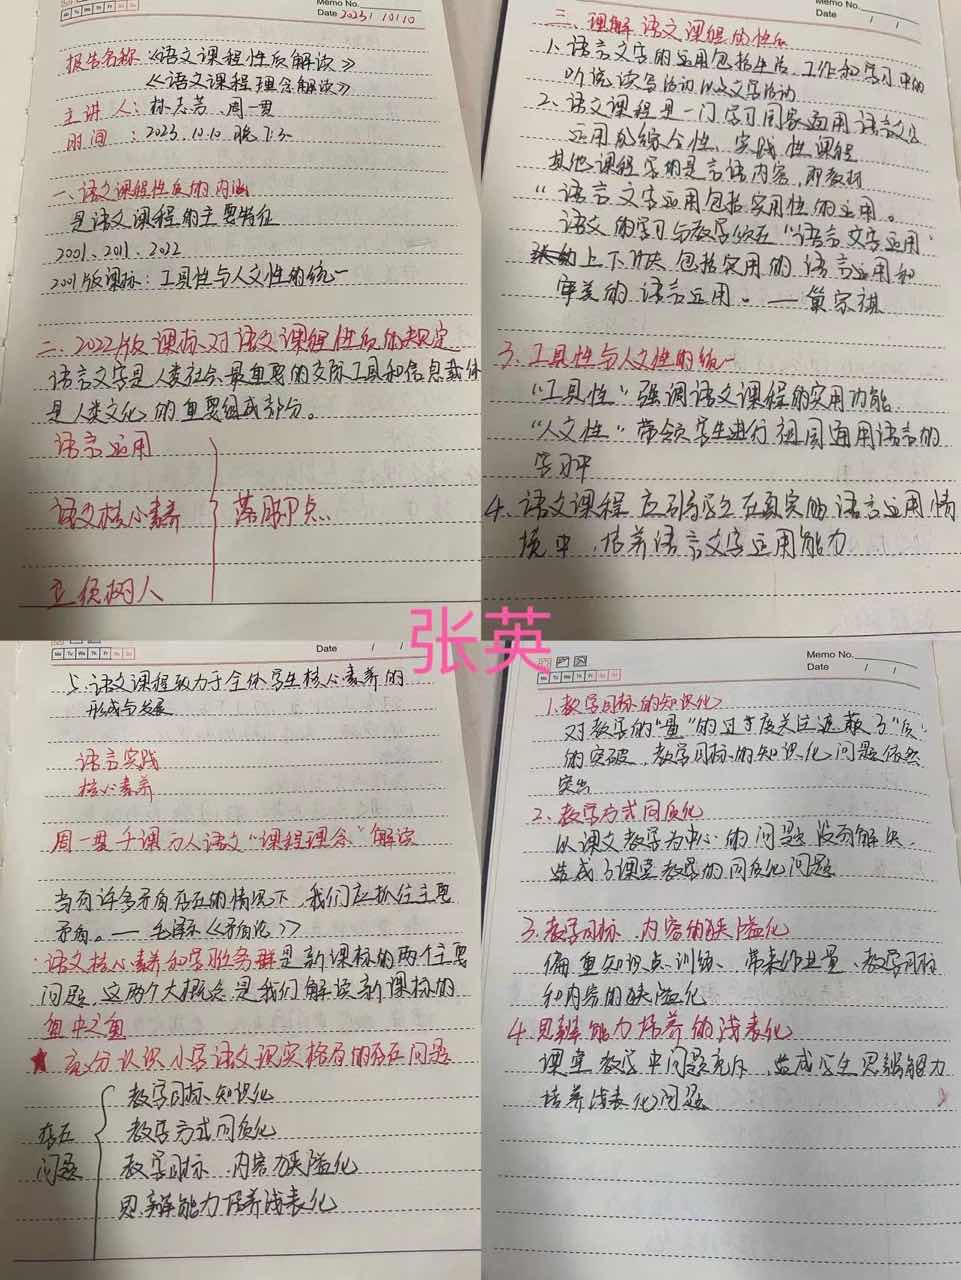 Memo No.
Date 2023 / 10/10
报告名称《语文课程性质解读》
《语文课程理念解读》
主讲人：林志芳、周一贯
时间：2023.10.10 晚 7:3
一、语文课程性质的内涵
是语文课程的主要特征
2001、2011、2022
2001版课标：工具性与人文性的统一
二、2022版课标对语文课程性质的规定
语言文字是人类社会最重要的交际工具和信息载体
是人类文化的重要组成部分。
语言运用
语文核心素养 落脚点
立德树人
Memo No.
Date / /
三、理解语文课程的性质
1、语言文字的运用包括生活、工作和学习中的
听说读写活动以及文学活动
2、语文课程是一门学习国家通用语言文字
运用的综合性、实践性课程
其他课程学的是言语内容，即教材
“语言文字运用包括实用性的运用。
语文的学习与教学须在“语言文字运用”
上下功夫 包括实用的语言运用和
审美的语言运用。——巢宗祺
3、工具性与人文性的统一
“工具性”强调语文课程的实用功能
“人文性”带领学生进行祖国通用语言的
学习中
4、语文课程应引导学生在真实的语言运用情
境中，培养语言文字运用能力
张英
Date / /
Mo Tu We Th Fr Sa Su
5、语文课程致力于全体学生核心素养的
形成与发展
语言实践
核心素养
周一贯 千课万人语文“课程理念”解读
当有许多矛盾存在的情况下，我们应抓住主要
矛盾。——毛泽东《矛盾论》
语文核心素养和学习任务群是新课标的两个主要
问题，这两个大概念是我们解读新课标的
重中之重
★ 充分认识小学语文课堂格局的存在问题
存在
问题
教学目标知识化
教学方式同质化
教学目标、内容狭隘化
思辨能力培养浅表化
Memo No.
Mo Tu We Th Fr Sa Su
Date / /
1、教学目标的知识化
对教学的“量”的过于度关注遮蔽了“质”
的突破，教学目标的知识化问题依然
突出
2、教学方式同质化
以课文教学为中心的问题没有解决，
造成了课堂教学的同质化问题
3、教学目标、内容的狭隘化
偏重知识点训练、带来作业量、教学目标
和内容的狭隘化
4、思辨能力培养的浅表化
课堂教学中问题充斥，造成学生思辨能力
培养浅表化问题